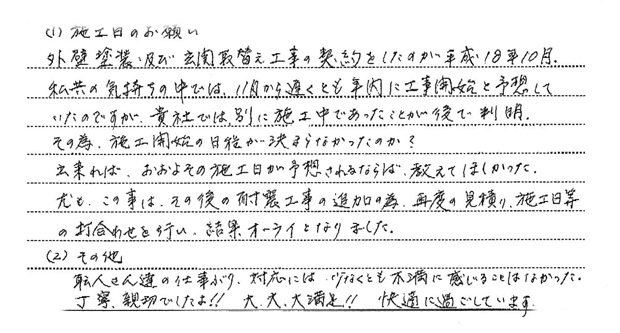 (1) 施工日のお願い
外壁塗装及び玄関取替え工事の契約をしたのが平成18年10月.
私共の気持ちの中では、11月から遅くとも年内に工事開始と予想して
いたのですが、貴社では別に施工中であったことが後で判明.
その為、施工開始の日程が決まらなかったのか?
出来れば、おおよその施工日が予想されるならば、教えてほしかった.
尤も、この事は、その後の耐震工事の追加の為、再度の見積り、施工日等
の打合わせを行い、結果オーライとなりました.
(2) その他
職人さん達の仕事ぶり、対応には 少なくとも不満に感じることはなかった.
丁寧、親切でしたよ!! 大、大、大満足!! 快適に過ごしています.